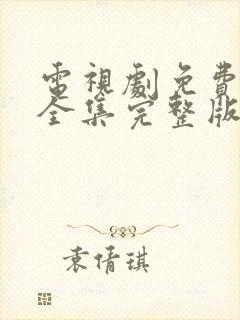 電視劇免費
全集完整版
袁倩琪